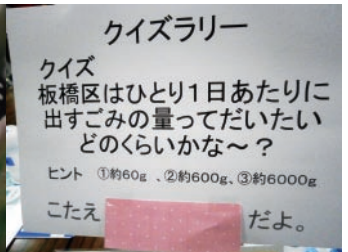 クイズラリー
クイズ
板橋区はひとり1日あたりに
出すごみの量ってだいたい
どのくらいかな～？
ヒント ①約60g 、②約600g、③約6000g
こたえ だよ。